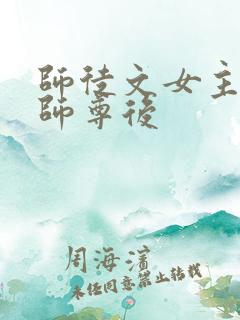 師徒文女主
師尊後
周海濱
未經同意禁止轉載